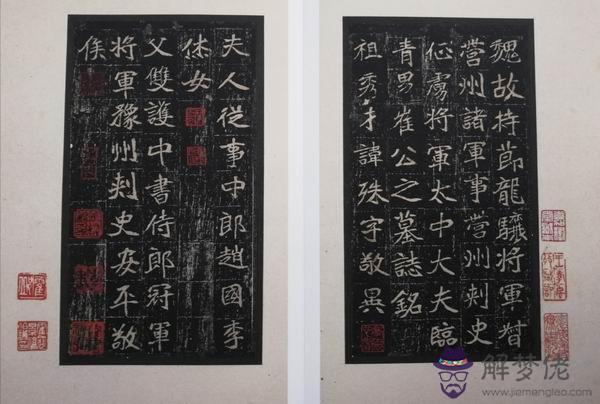 魏故持節龍驤將軍督
營州諸軍事營州刺史
征虜將軍太中大夫臨
青男崔公之墓誌銘
祖秀才諱殊字敬異
夫人從事中郎趙國李
休女
父雙護中書侍郎冠軍
將軍豫州刺史安平敬
侯
解梦佬
www.jiemenglao.com